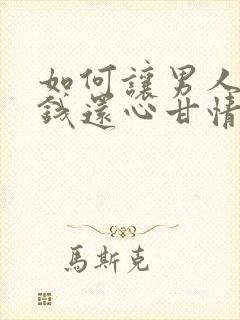 如何讓男人
錢還心甘情
馬斯克